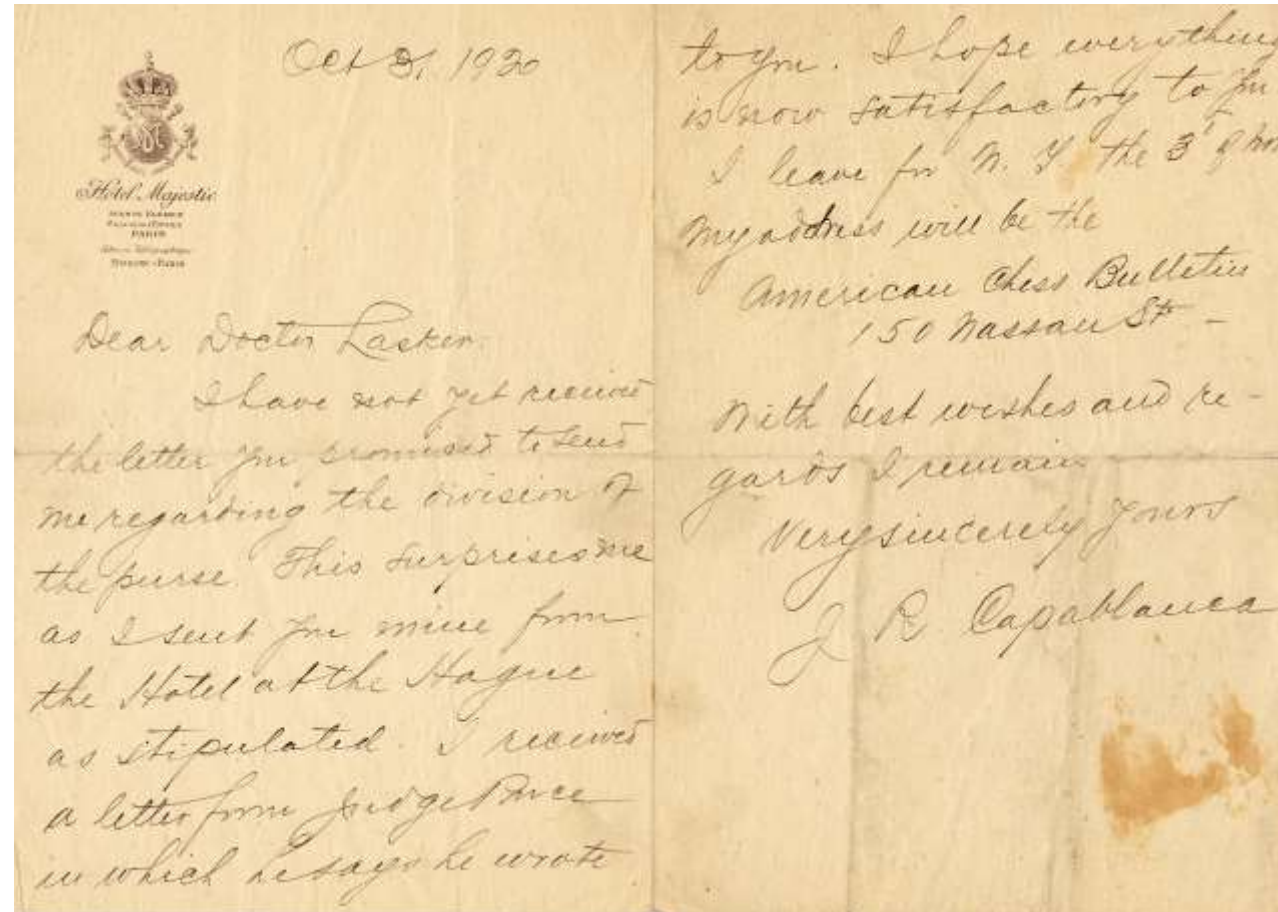 Oct 31, 1920
Hotel Majestic
PARIS
Dear Doctor Lasker:
I have not yet received
the letter you promised to send
me regarding the division of
the purse. This surprises me
as I sent you mine from
the Hotel at the Hague
as stipulated. I received
a letter from Judge Ponce
in which he says he wrote
to you. I hope everything
is now satisfactory to you
I leave for N. Y the 3 of Nov
My address will be the
American Chess Bulletin
150 Nassau St -
With best wishes and re-
gards I remain
Very sincerely yours
J R Capablanca